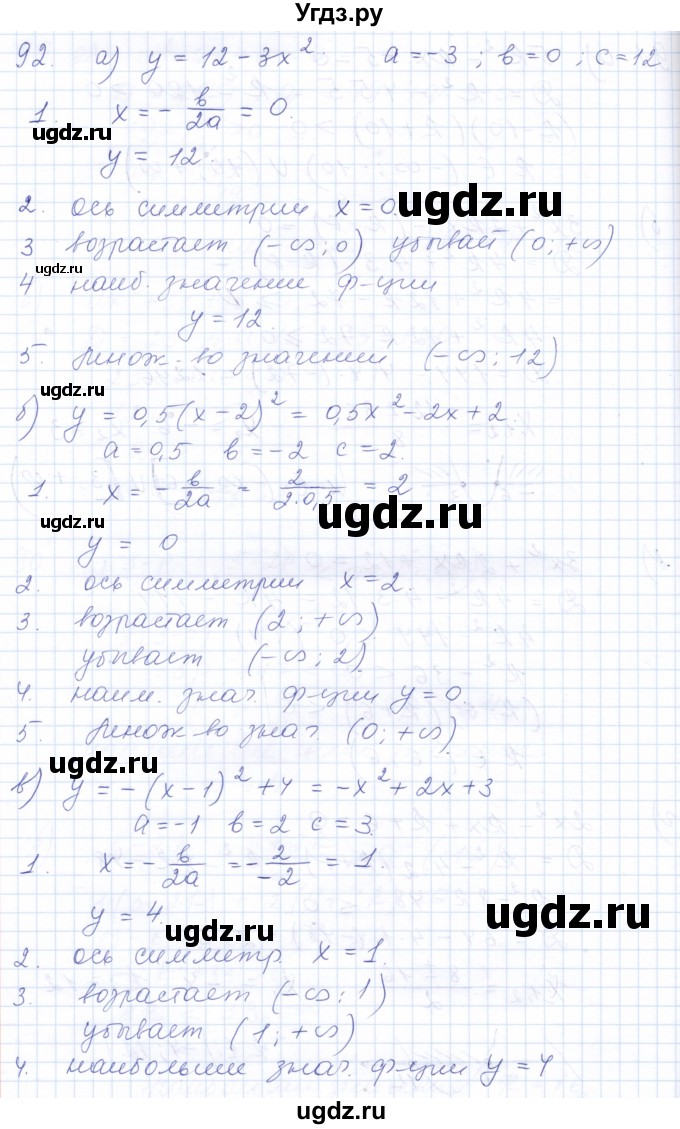 Угдз.ру
92. а) y = 12 - 3x². a = -3 ; в = 0 ; c = 12
1. x = - в/2a = 0.
ugdz.ru
y = 12.
ugdz.ru
2. ось симметрии x = 0.
ugdz.ru
3 возрастает (-∞; 0) убывает (0; +∞)
ugdz.ru
4 наиб. значение ф-ции
y = 12.
5. Множ-во значений, (-∞; 12)
ugdz.ru
б) y = 0,5(x-2)² = 0,5x² - 2x + 2.
a = 0,5 в = -2 c = 2.
1. x = - в/2a = 2/2·0,5 = 2
ugdz.ru
ugdz.ru
y = 0
2. ось симметрии x = 2.
3. возрастает (2; +∞)
ugdz.ru
убывает (-∞; 2).
4. наим. знач. ф-ции y = 0
5. Множ-во знач. (0; +∞)
ugdz.ru
в) y = -(x-1)² + 4 = -x² + 2x + 3
a = -1 в = 2 c = 3.
1. x = - в/2a = - 2/-2 = 1.
y = 4.
ugdz.ru
ugdz.ru
2. ось симметр. x = 1.
3. возрастает (-∞; 1)
убывает (1; +∞)
ugdz.ru
4. наибольшее знач. ф-ции y = 4
ugdz.ru